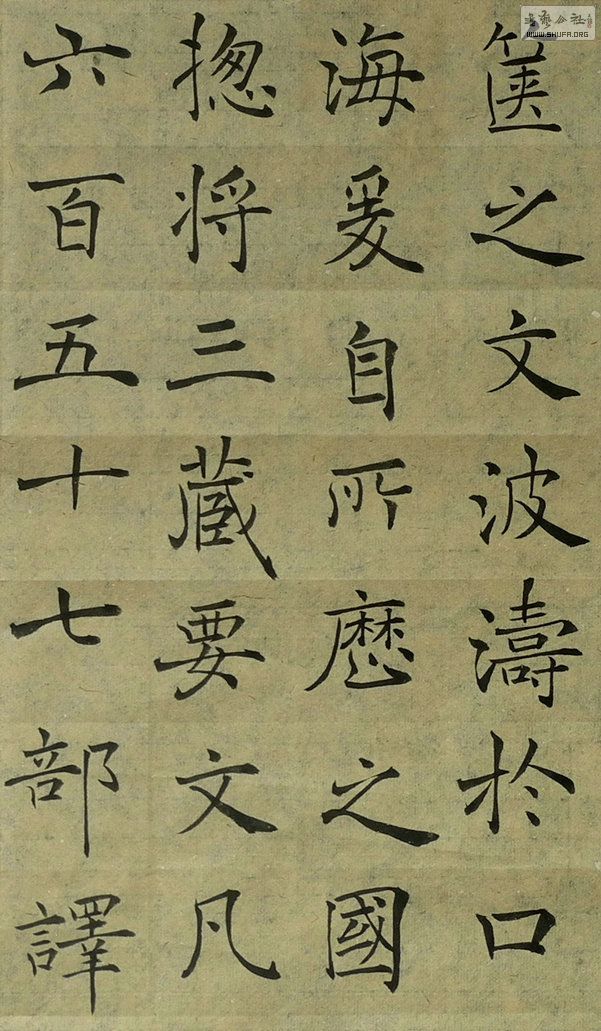 書藝公社
WWW.SHUFA.ORG
篋之文波濤於口
海爰自所歷之國
揔将三藏要文凡
六百五十七部譯